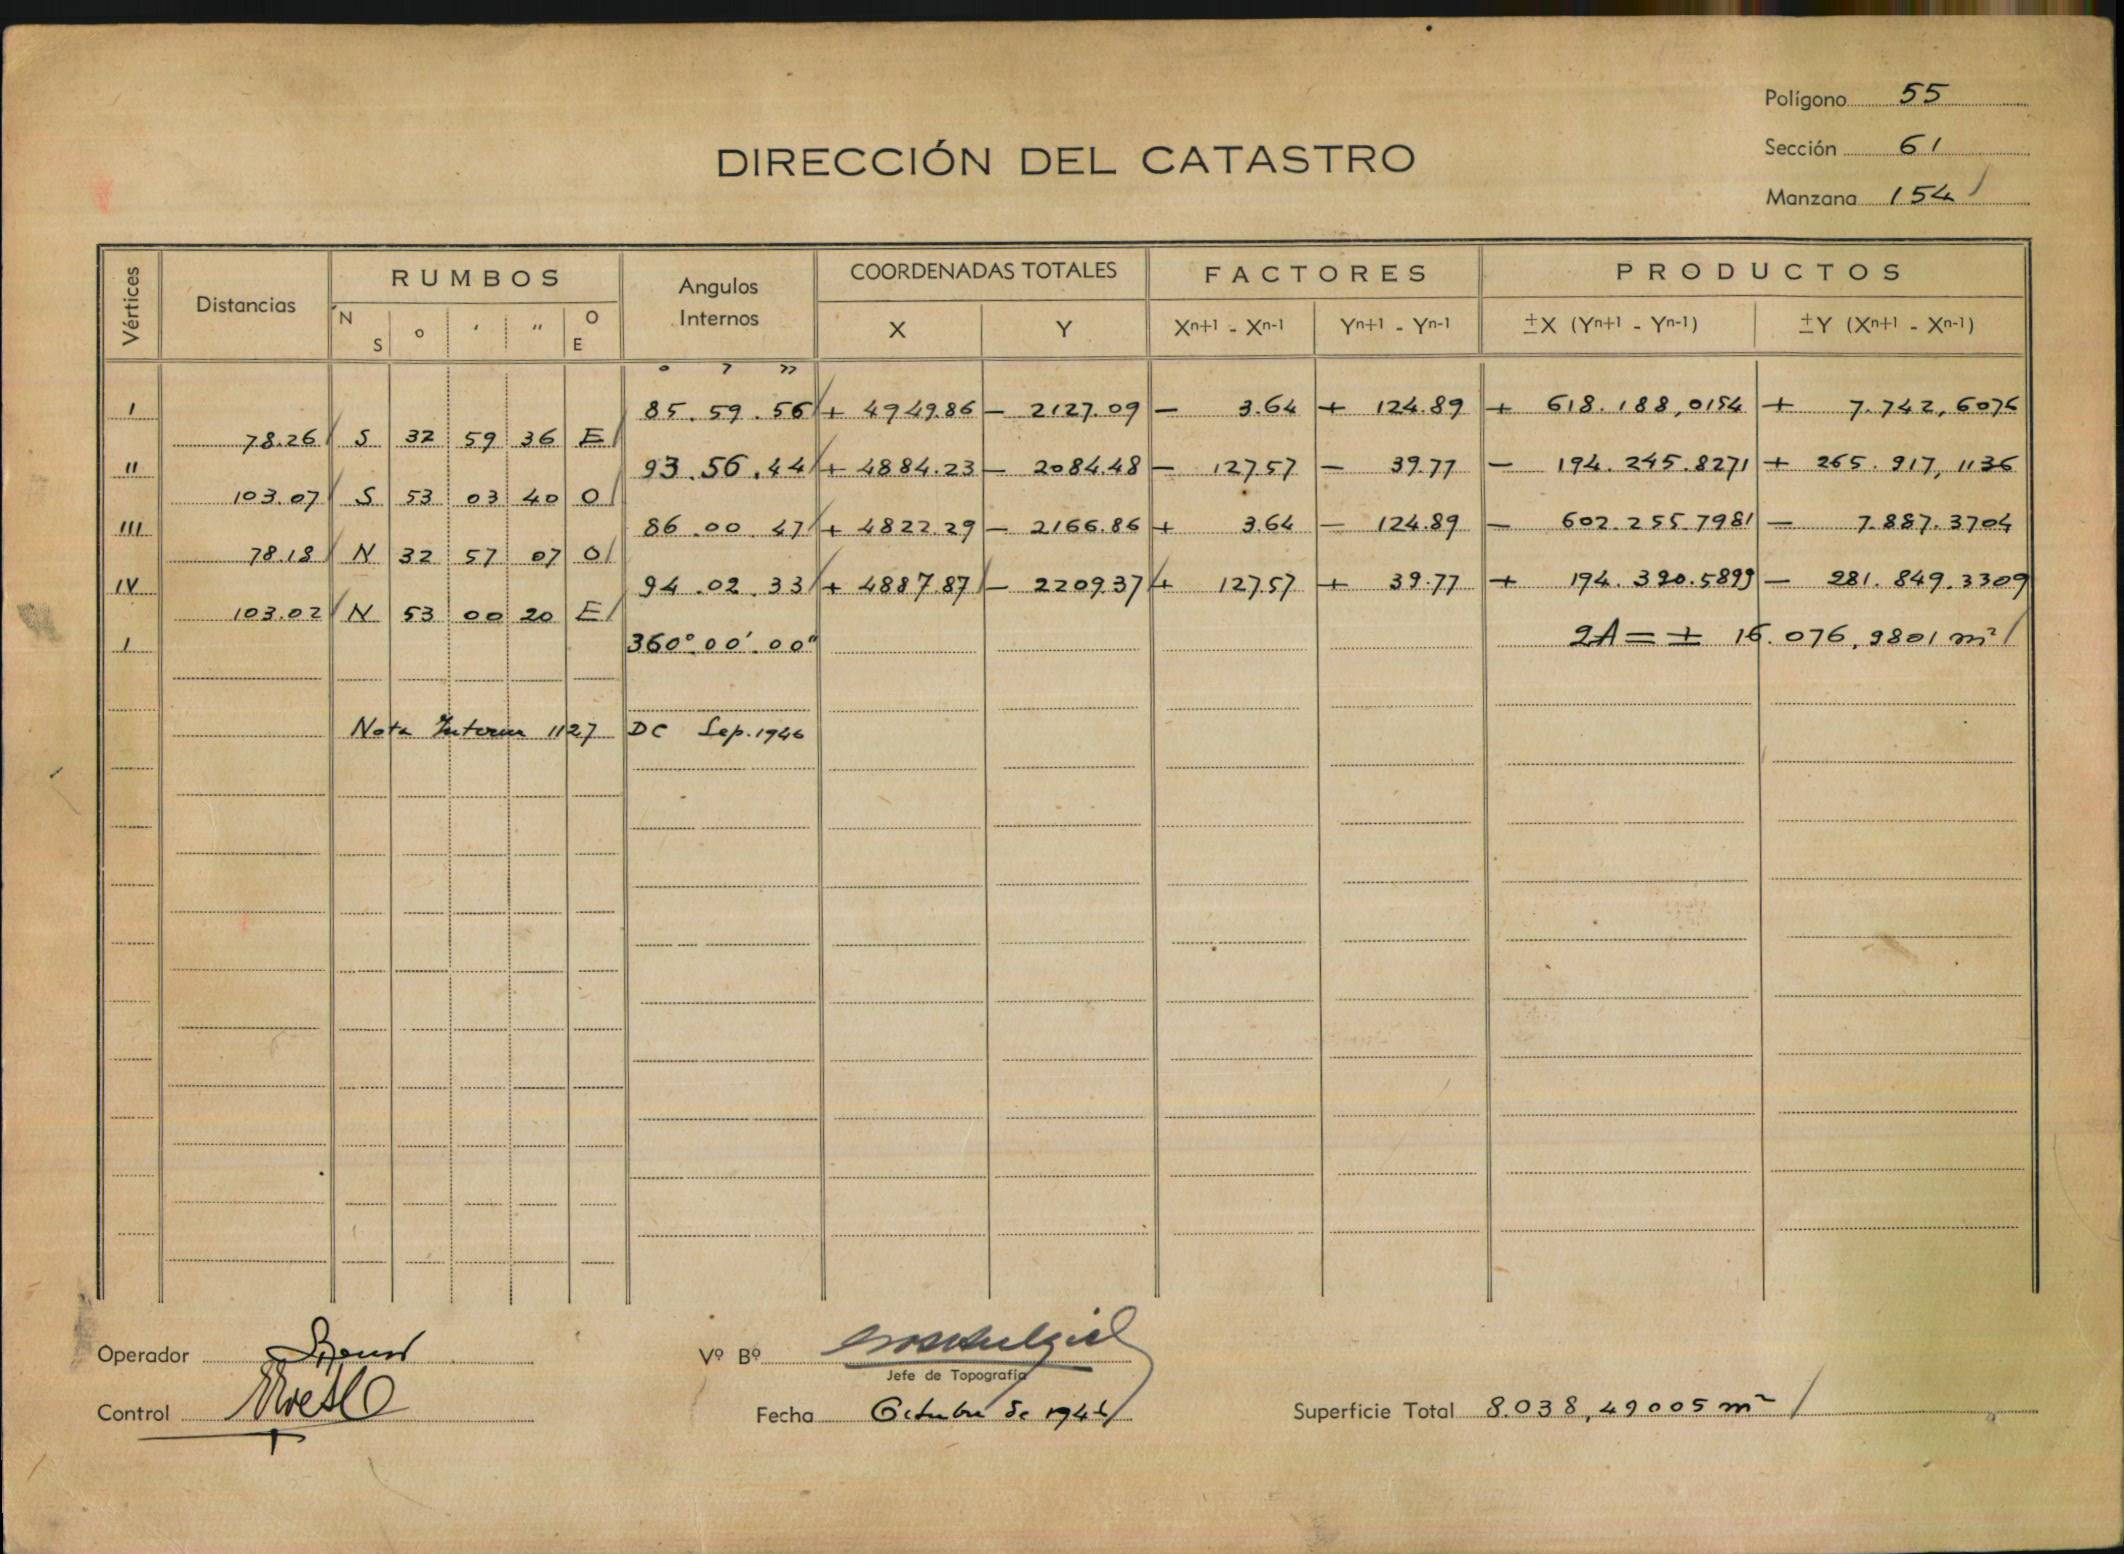 Polígono 55
Sección 61
DIRECCIÓN DEL CATASTRO
Manzana 154
Vértices Distancias RUMBOS Angulos Internos COORDENADAS TOTALES FACTORES PRODUCTOS
N S o ' " O E X Y Xn+1 - Xn-1 Yn+1 - Yn-1 ±X (Yn+1 - Yn-1) ±Y (Xn+1 - Xn-1)
o ' "
I 85.59.56 + 4949.86 - 2127.09 - 3.64 + 124.89 + 618.188,0154 + 7.742,6076
78.26 S 32 59 36 E
II 93.56.44 + 4884.23 - 2084.48 - 127.57 - 39.77 - 194.245.8271 + 265.917,1136
103.07 S 53 03 40 O
III 86.00.47 + 4822.29 - 2166.86 + 3.64 - 124.89 - 602.255.7981 - 7.887.3704
78.18 N 32 57 07 O
IV 94.02.33 + 4887.87 - 2209.37 + 127.57 + 39.77 + 194.390.5899 - 281.849.3309
103.02 N 53 00 20 E
I 360°.00'.00" 2A = ± 16.076,9801 m²
Nota Interna 1127 DC Sep. 1946
Operador
Vº Bº
Jefe de Topografía
Control
Fecha Octubre de 1946
Superficie Total 8.038,49005 m²